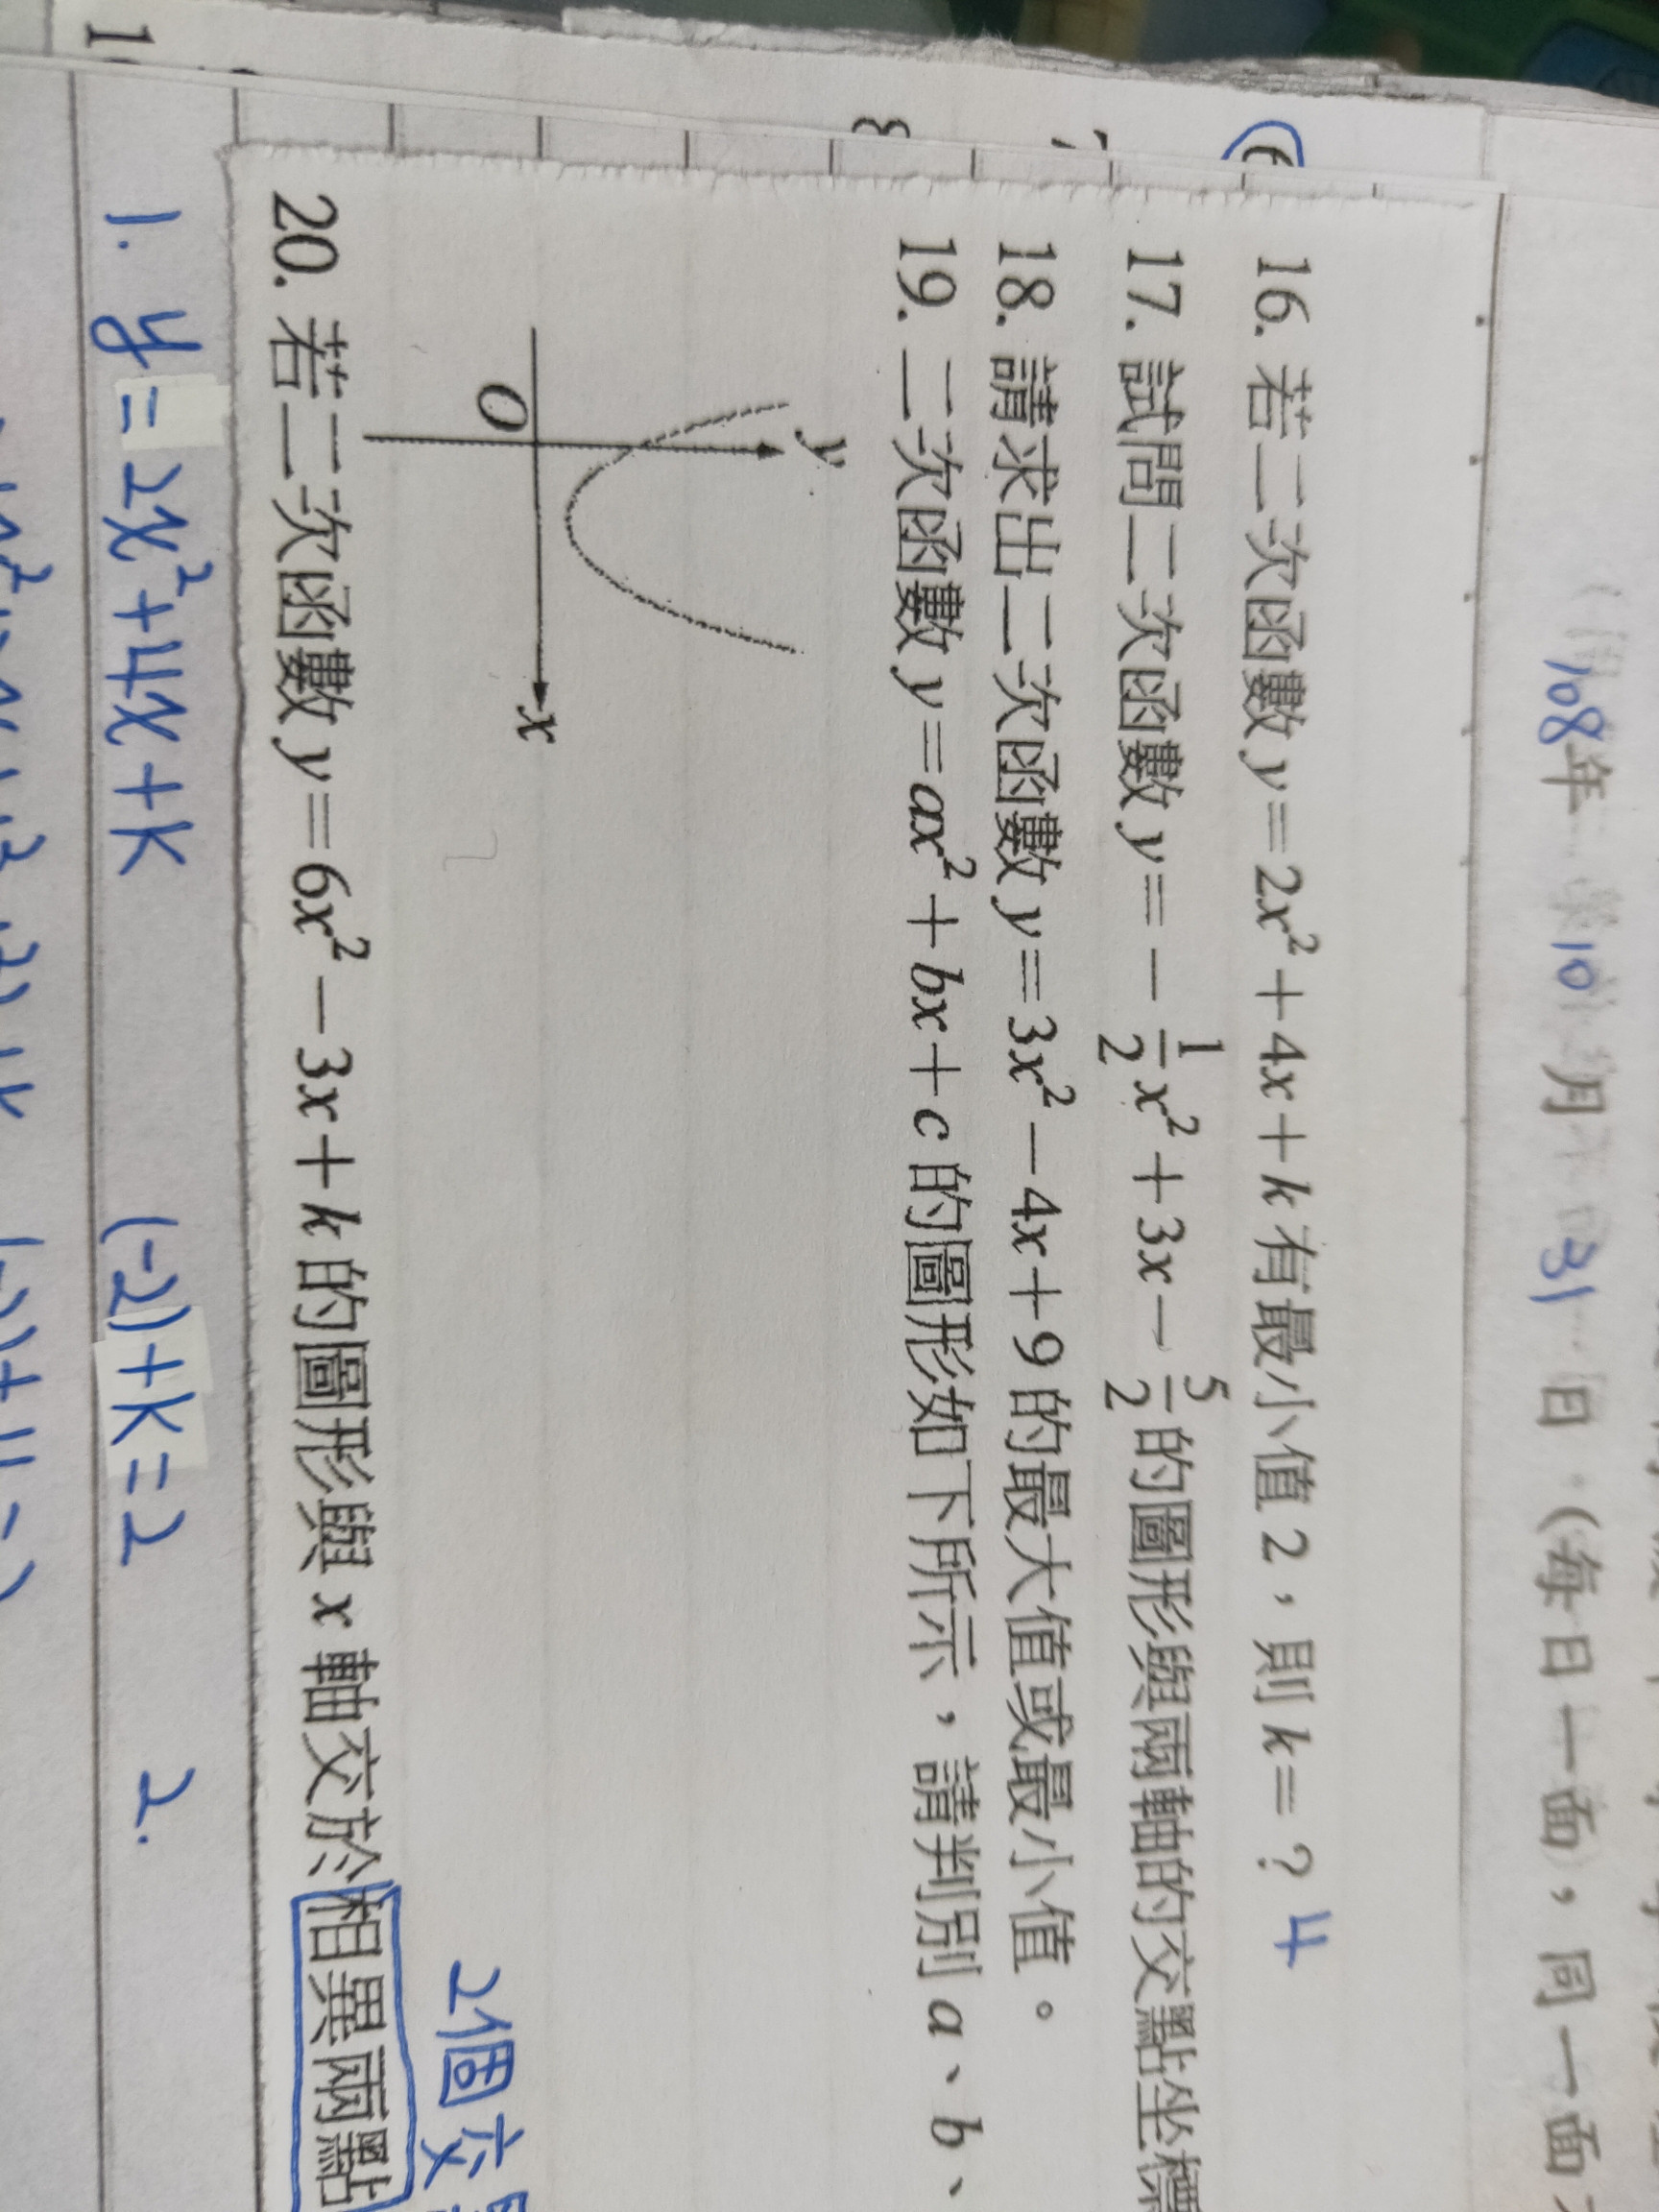 108年 10月31日 (每日一面，同一面
16. 若二次函數 y=2x²+4x+k 有最小值 2，則 k=? 4
17. 試問二次函數 y=-1/2x²+3x-5/2 的圖形與兩軸的交點坐標
18. 請求出二次函數 y=3x²-4x+9 的最大值或最小值。
19. 二次函數 y=ax²+bx+c 的圖形如下所示，請判別 a、b、
y
O
x
2個交
20. 若二次函數 y=6x²-3x+k 的圖形與 x 軸交於相異兩點
1. y=2x²+4x+k (-2)+k=2 2.